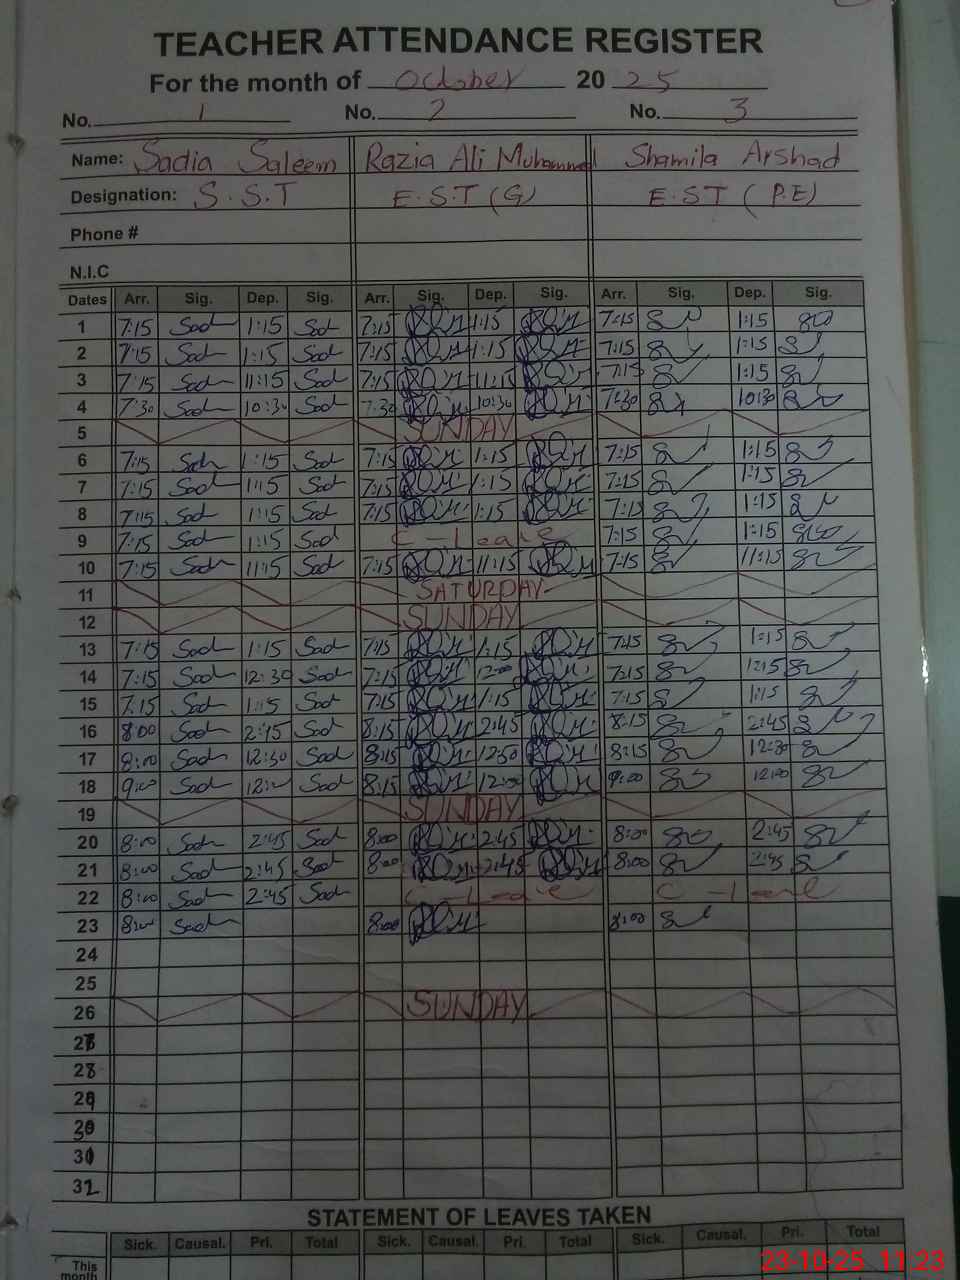 TEACHER ATTENDANCE REGISTER
For the month of October 20 25
No. 1 No. 2 No. 3
Name: Sadia Saleem Razia Ali Muhammad Shamila Arshad
Designation: S.S.T E.S.T (G) E.S.T (P.E)
Phone #
N.I.C
Dates Arr. Sig. Dep. Sig. Arr. Sig. Dep. Sig. Arr. Sig. Dep. Sig.
1 7:15 Sad 1:15 Sad 7:15 1:15 7:15 1:15
2 7:15 Sad 1:15 Sad 7:15 1:15 7:15 1:15
3 7:15 Sad 11:15 Sad 7:15 11:15 7:15 1:15
4 7:30 Sad 10:30 Sad 7:30 10:30 7:30 10:30
5 SUNDAY
6 7:15 Sad 1:15 Sad 7:15 1:15 7:15 1:15
7 7:15 Sad 1:15 Sad 7:15 1:15 7:15 1:15
8 7:15 Sad 1:15 Sad 7:15 1:15 7:15 1:15
9 7:15 Sad 1:15 Sad C-Leave 7:15 1:15
10 7:15 Sad 11:15 Sad 7:15 11:15 7:15 11:15
11 SATURDAY
12 SUNDAY
13 7:15 Sad 1:15 Sad 7:15 1:15 7:15 1:15
14 7:15 Sad 12:30 Sad 7:15 12:00 7:15 1:15
15 7:15 Sad 1:15 Sad 7:15 1:15 7:15 1:15
16 8:00 Sad 2:15 Sad 8:15 2:45 8:15 2:45
17 8:00 Sad 12:30 Sad 8:15 12:30 8:15 12:30
18 9:00 Sad 12:00 Sad 8:15 12:00 9:00 12:00
19 SUNDAY
20 8:00 Sad 2:45 Sad 8:00 2:45 8:00 2:45
21 8:00 Sad 2:45 Sad 8:00 2:45 8:00 2:45
22 8:00 Sad 2:45 Sad C-Leave C-Leave
23 8:00 Sad 8:00 8:00
24
25
26 SUNDAY
27
28
29
30
31
STATEMENT OF LEAVES TAKEN
Sick. Causal. Pri. Total Sick. Causal. Pri. Total Sick. Causal. Pri. Total
This month
23-10-25 11:23